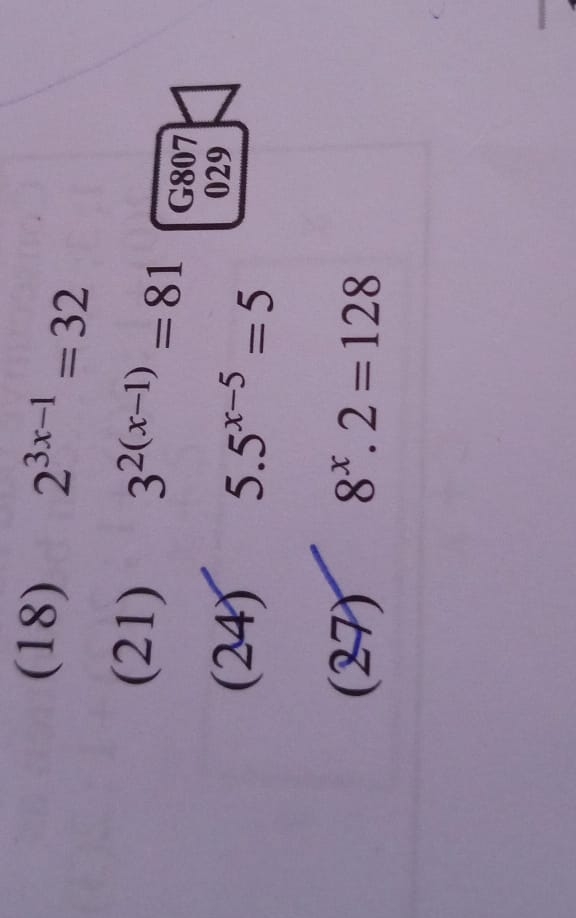 (18) 2^{3x-1} = 32
(21) 3^{2(x-1)} = 81
G807
029
(24) 5.5^{x-5} = 5
(27) 8^x. 2 = 128